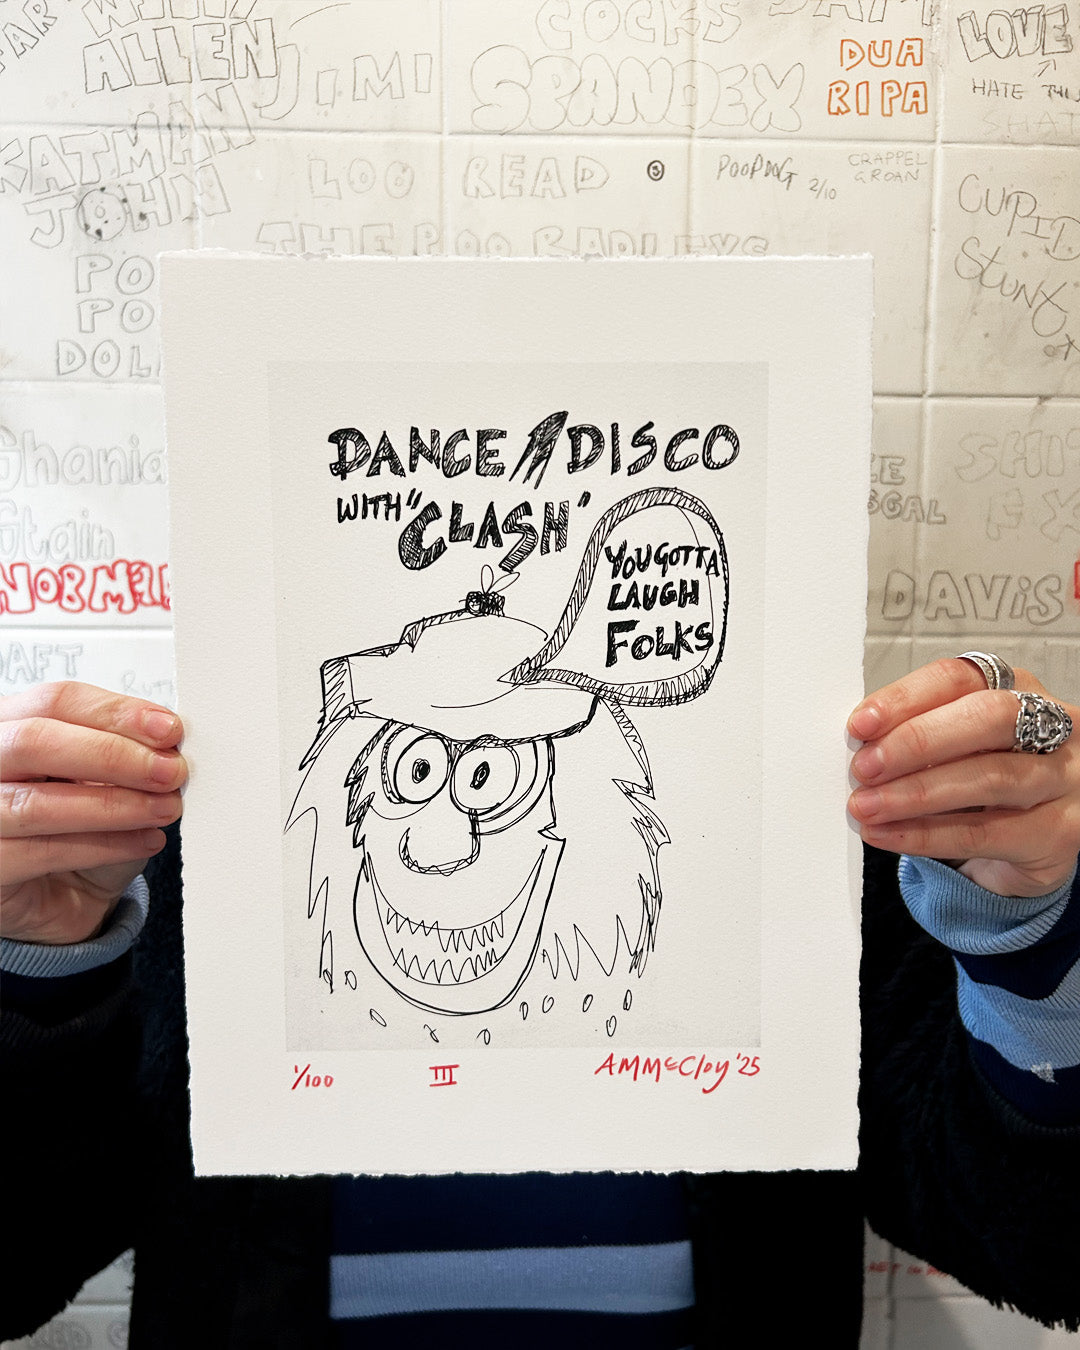 ALLEN
JIMI
COCKS
SPANDEX
DUA
RIPA
LOVE
HATE
KATMAN
JOHN
LOO READ
POOPDOG
2/10
CRAPPEL
GROAN
CUPID
STUNX
THE POO RADLEYS
PO
PO
DOL
Ghania
Gtain
DAFT
DAViS
DANCE DISCO
WITH "CLASH"
YOU GOTTA
LAUGH
FOLKS
1/100
III
AMMcCloy '25